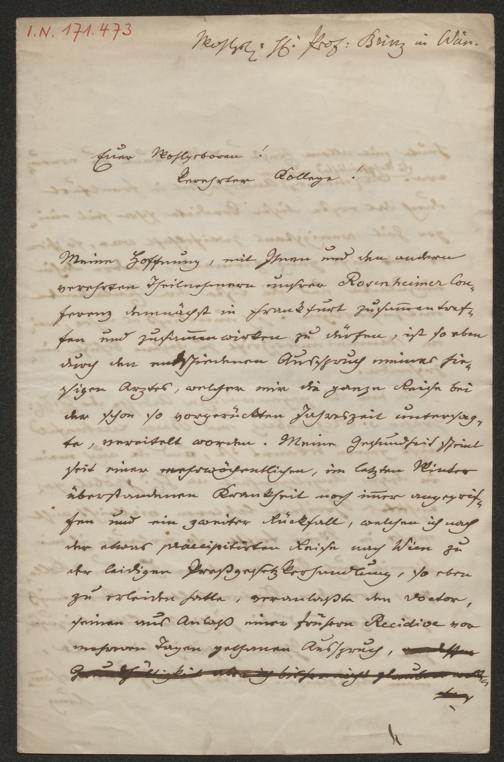 I.N. 171.473
Wohlgb: H: Prof: Brinz in Wien.
Euer Wohlgeboren!
Verehrter College!
Meine Hoffnung, mit Ihnen und den anderen
verehrten Theilnehmern unsrer Rosenheimer Con-
ferenz demnächst in Frankfurt zusammentref-
fen und zusammenwirken zu dürfen, ist so eben
durch den entschiedenen Ausspruch meines hie-
sigen Arztes, welcher mir die ganze Reise bei
der schon so vorgerückten Jahreszeit untersag-
te, vereitelt worden. Meine Gesundheit scheint
seit einer mehrwöchentlichen, im letzten Winter
überstandenen Krankheit noch immer angegrif-
fen und ein zweiter Rückfall, welchen ich nach
der etwas präcipitirten Reise nach Wien zu
der leidigen Preßgesetzverhandlung, so eben
zu erleiden hatte, veranlaßte den Doctor,
seinen aus Anlaß einer frühern Recidive vor
mehreren Tagen gethanen Ausspruch,